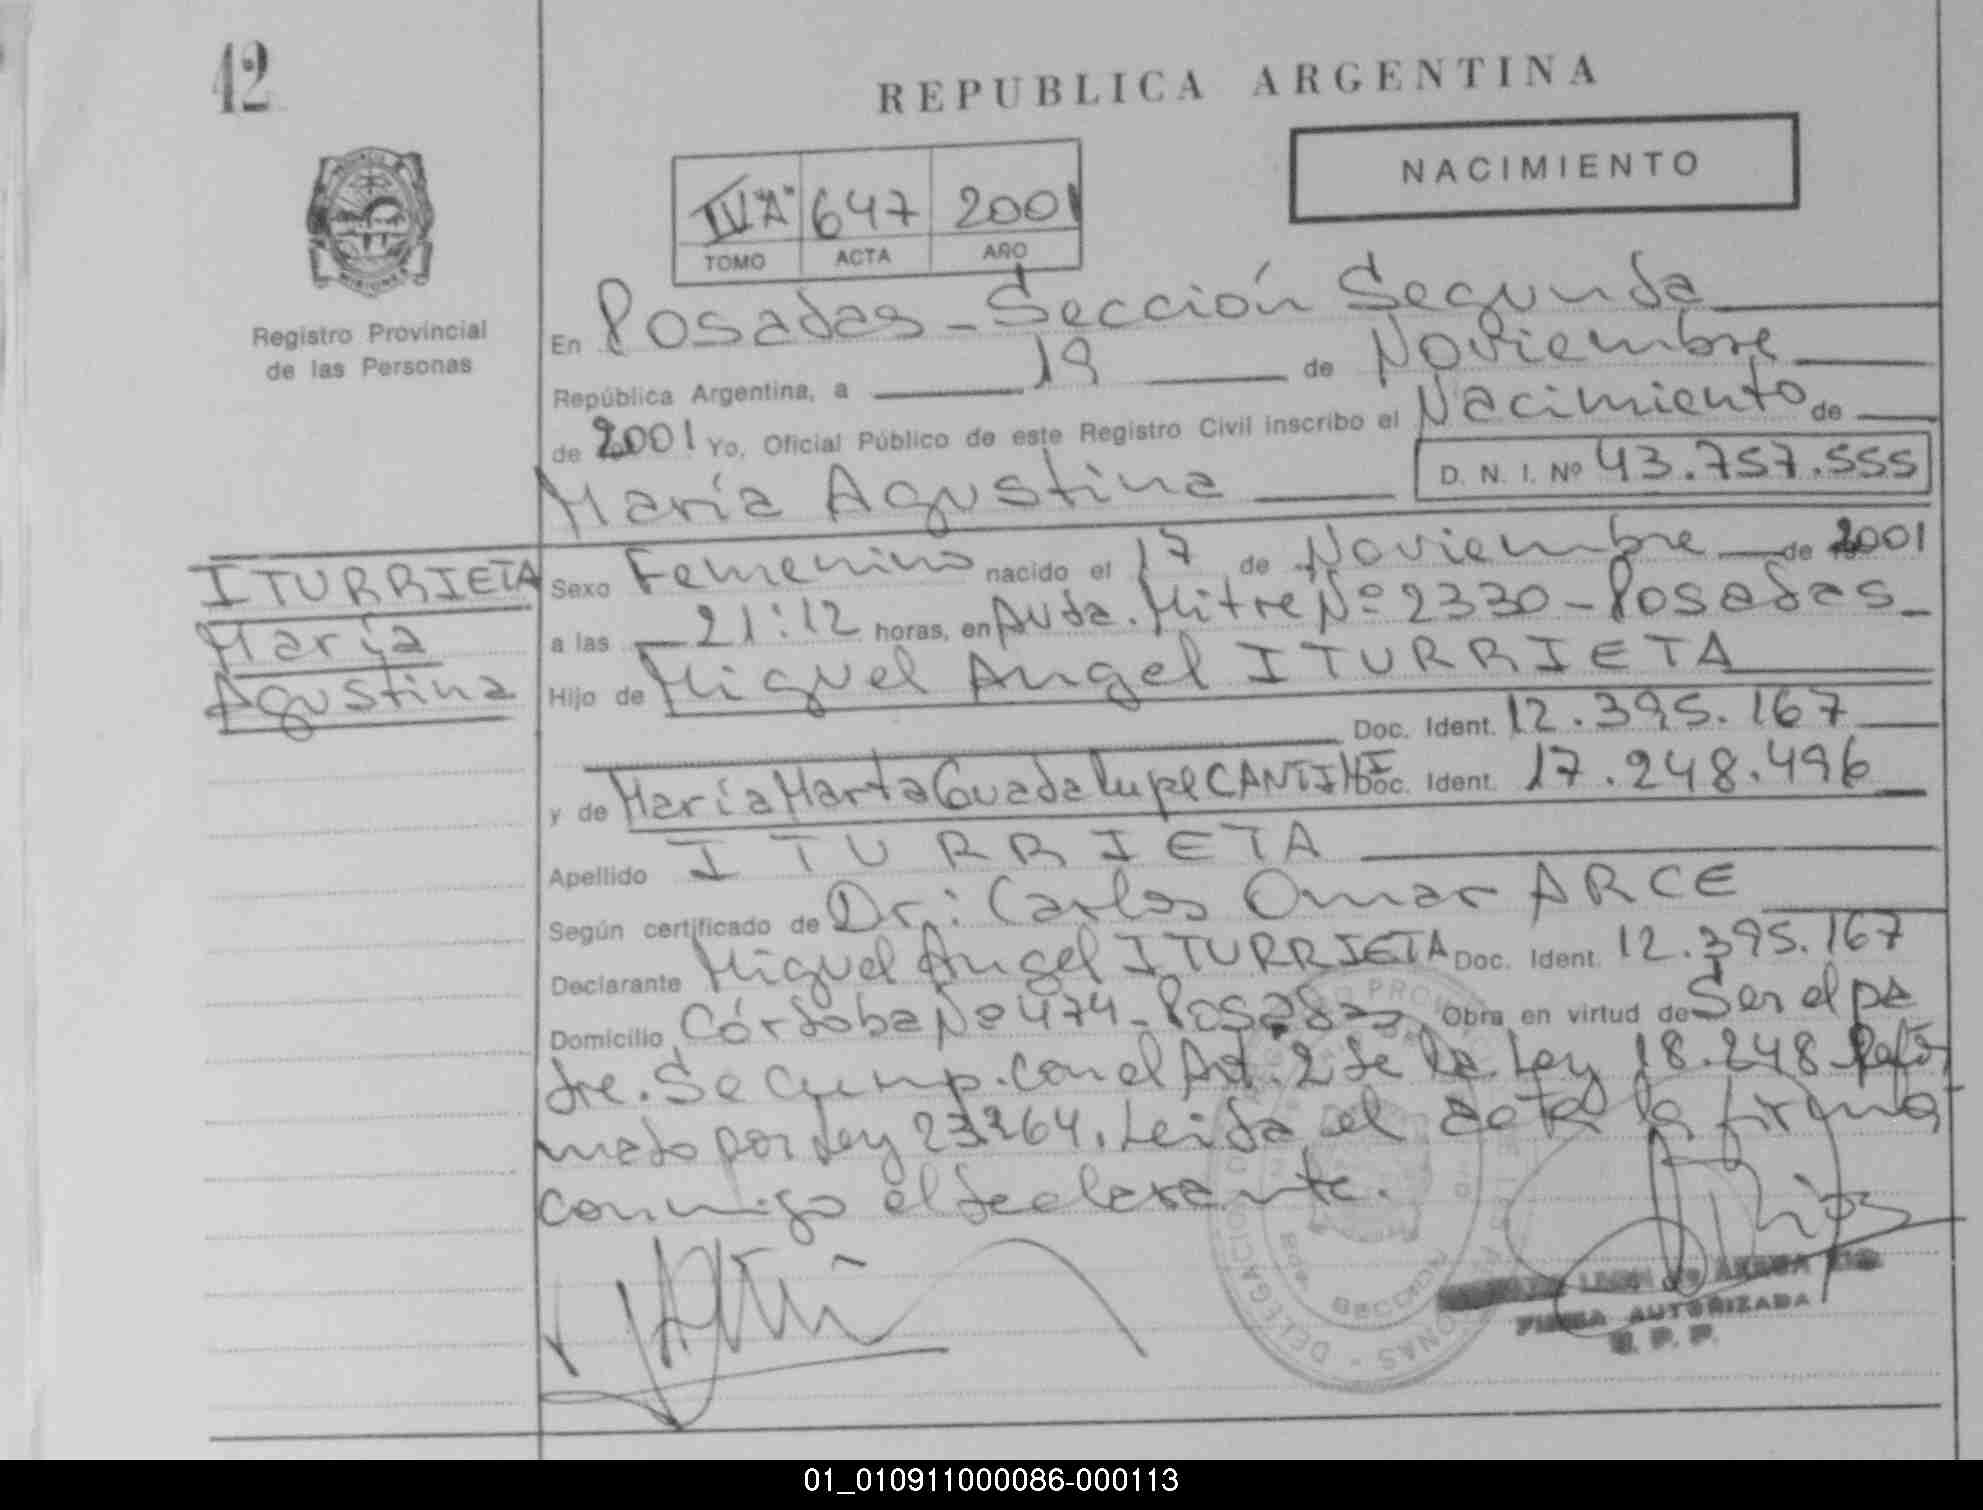 42
REPUBLICA ARGENTINA
NACIMIENTO
IV "A" 647 2001
TOMO ACTA AÑO
Registro Provincial
de las Personas
En Posadas - Sección Segunda
República Argentina, a 19 de Noviembre
de 2001 Yo, Oficial Público de este Registro Civil inscribo el Nacimiento de
María Agustina D. N. I. Nº 43.757.555
ITURRIETA
María
Agustina
Sexo Femenino nacido el 17 de Noviembre de 2001
a las 21:12 horas, en Avda. Mitre Nº 2330 - Posadas -
Hijo de Miguel Angel ITURRIETA
Doc. Ident. 12.395.167
y de María Marta Guadalupe CANTINI Doc. Ident. 17.248.496
Apellido ITURRIETA
Según certificado de Dr.: Carlos Omar ARCE
Declarante Miguel Angel ITURRIETA Doc. Ident. 12.395.167
Domicilio Córdoba Nº 474 - Posadas Obra en virtud de Ser el pa
dre. Se Cump. con el Art. 2 de la Ley 18.248 Refor
mado por Ley 23264. Leida el acta la firma
conmigo el declarante.
DELEGACION
SECCION
FIRMA AUTORIZADA
R. P. P.
01_010911000086-000113